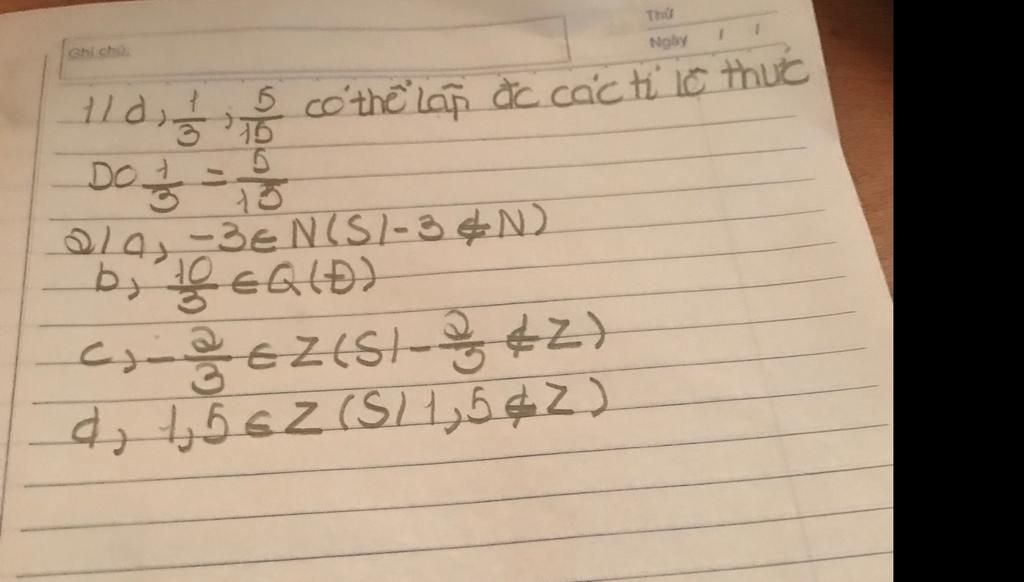 Thứ
Ghi chú:
Ngày / /
1/ d, 1/3 ; 5/15 có thể lập đc các tỉ lệ thức
DO 1/3 = 5/15
2/ a, -3 ∈ N (S/ -3 ∉ N)
b, 10/3 ∈ Q (Đ)
c, -2/3 ∈ Z (S/ -2/3 ∉ Z)
d, 1,5 ∈ Z (S/ 1,5 ∉ Z)